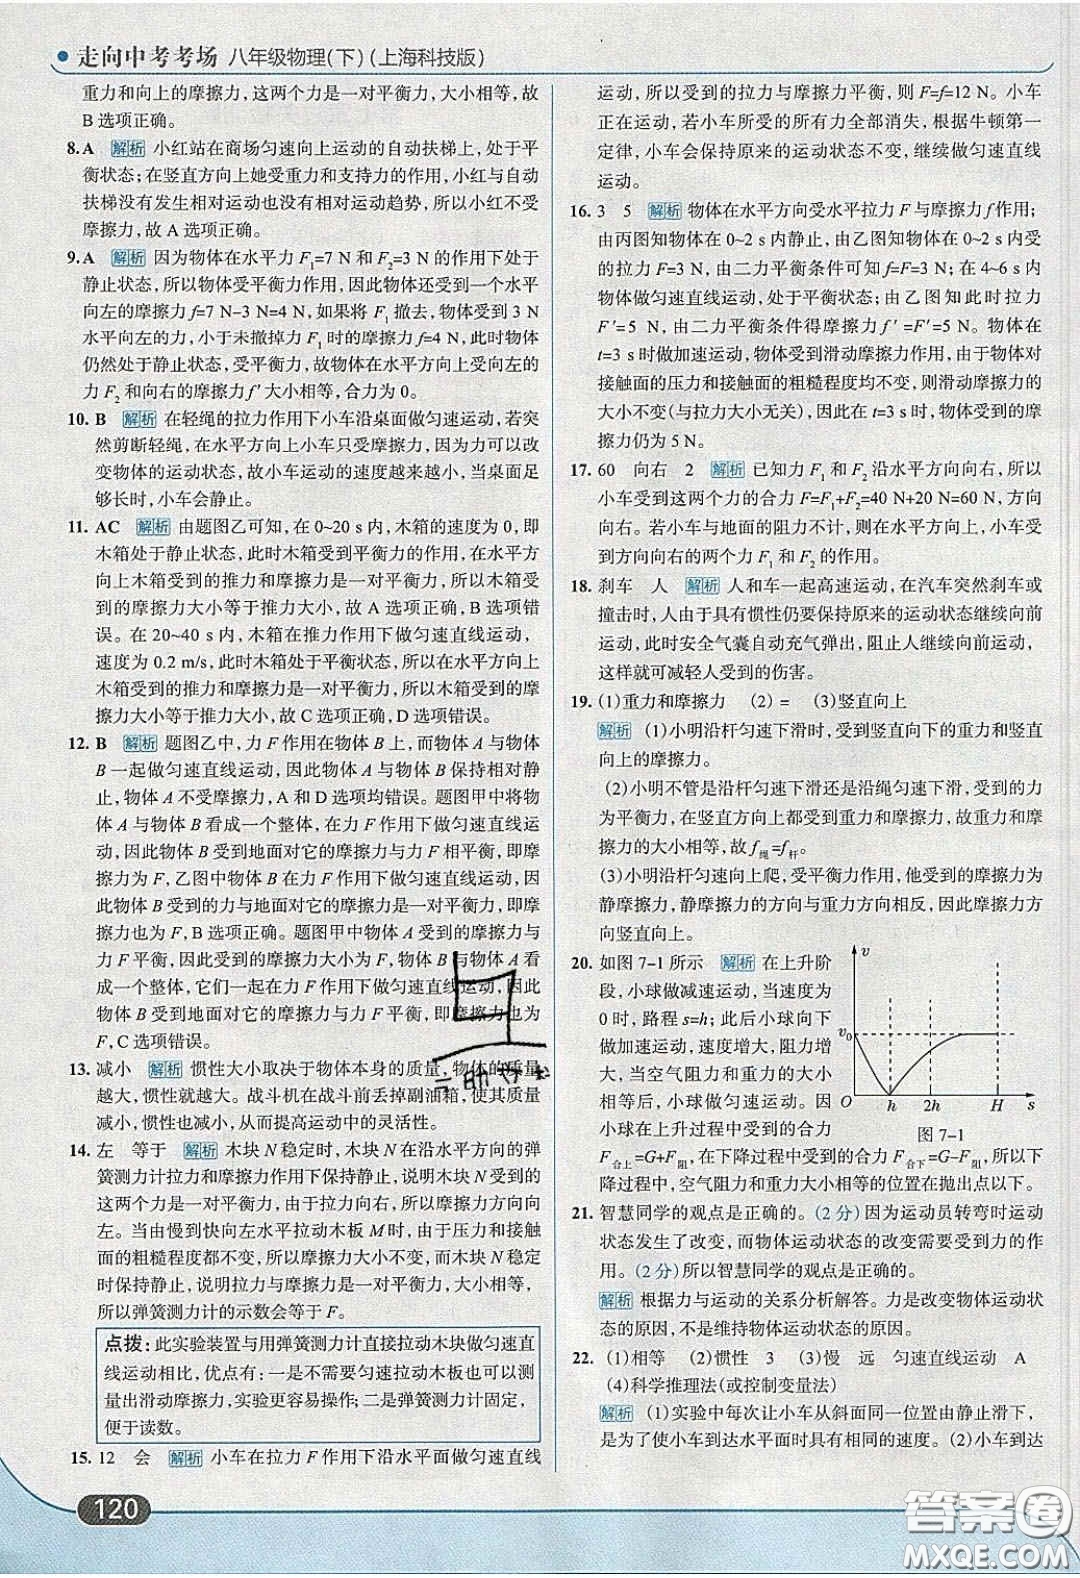 走向中考考场 八年级物理(下)(上海科技版)
重力和向上的摩擦力,这两个力是一对平衡力,大小相等,故
B 选项正确。
8.A 解析 小红站在商场匀速向上运动的自动扶梯上,处于平
衡状态;在竖直方向上她受重力和支持力的作用,小红与自动
扶梯没有发生相对运动也没有相对运动趋势,所以小红不受
摩擦力,故 A 选项正确。
9.A 解析 因为物体在水平力 F₁=7 N 和 F₂=3 N 的作用下处于
静止状态,所以物体受平衡力作用,因此物体还受到一个水平
向左的摩擦力 f=7 N-3 N=4 N,如果将 F₁ 撤去,物体受到 3 N
水平向左的力,小于未撤掉力 F₁ 时的摩擦力 f=4 N,此时物体
仍然处于静止状态,受平衡力,故物体在水平方向上受向左的
力 F₂ 和向右的摩擦力 f′ 大小相等,合力为 0。
10. B 解析 在轻绳的拉力作用下小车沿桌面做匀速运动,若突
然剪断轻绳,在水平方向上小车只受摩擦力,因为力可以改
变物体的运动状态,故小车运动的速度越来越小,当桌面足
够长时,小车会静止。
11. AC 解析 由题图乙可知,在 0~20 s 内,木箱的速度为 0,即
木箱处于静止状态,此时木箱受到平衡力的作用,在水平方
向上木箱受到的推力和摩擦力是一对平衡力,木箱受到
的摩擦力大小等于推力大小,故 A 选项正确,B 选项错
误。在 20~40 s 内,木箱在推力作用下做匀速直线运动,
速度为 0.2 m/s,此时木箱处于平衡状态,所以在水平方向上
木箱受到的推力和摩擦力是一对平衡力,木箱受到的摩
擦力大小等于推力大小,故 C 选项正确,D 选项错误。
12. B 解析 题图乙中,力 F 作用在物体 B 上,而物体 A 与物体
B 一起做匀速直线运动,物体 A 与物体 B 保持相对静
止,物体 A 不受摩擦力,A 和 D 选项均错误。题图甲中将物
体 A 与物体 B 看成一个整体,在力 F 作用下做匀速直线运
动,因此物体 B 受到地面对它的摩擦力与力 F 相平衡,即摩
擦力为 F,乙图中物体 B 在力 F 作用下做匀速直线运动,因
此物体 B 受到的力与地面对它的摩擦力大小相等,即摩
擦力也为 F,B 选项正确。题图甲中物体 A 受到的摩擦力与
力 F 平衡,因此受到的摩擦力大小为 F,物体 B 与物体 A 看
成一个整体,它们一起在力 F 作用下做匀速直线运动,因此
物体 B 受到地面对它的摩擦力与力 F 平衡,即摩擦力也为
F,C 选项错误。
13. 减小 解析 惯性大小取决于物体本身的质量,物体的质量
越大,惯性就越大。战斗机在战斗前丢掉副油箱,使其质量
减小,惯性也减小,从而提高运动中的灵活性。
14. 左 等于 解析 木块 N 稳定时,木块 N 在沿水平方向的弹
簧测力计拉力和摩擦力作用下保持静止,说明木块 N 受到的
这两个力是一对平衡力,由于拉力向右,所以摩擦力方向向
左。当由慢到快向左水平拉动木板 M 时,由于压力和接触
面的粗糙程度都不变,所以摩擦力大小不变,而木块 N 稳定
时保持静止,说明拉力与摩擦力是一对平衡力,大小相等,
所以弹簧测力计的示数会等于 F。
点拨: 此实验装置与用弹簧测力计直接拉动木块做匀速直
线运动相比,优点有:一是不需要匀速拉动木板也可以测
量出滑动摩擦力,实验更容易操作;二是弹簧测力计固定,
便于读数。
15. 12 会 解析 小车在拉力 F 作用下沿水平面做匀速直线
运动,所以受到的拉力与摩擦力平衡,则 F=f=12 N。小车
正在运动,若小车所受的所有力全部消失,根据牛顿第一
定律,小车会保持原来的运动状态不变,继续做匀速直线
运动。
16. 3 5 解析 物体在水平方向受水平拉力 F 与摩擦力 f 作用;
由丙图知物体在 0~2 s 内静止,由乙图知物体在 0~2 s 内受
的拉力 F=3 N,由二力平衡条件可知 f=F=3 N;在 4~6 s 内
物体做匀速直线运动,处于平衡状态;由乙图知此时拉力
F′=5 N,由二力平衡条件得摩擦力 f′=F′=5 N。物体在
t=3 s 时做加速运动,物体受到滑动摩擦力作用,由于物体对
接触面的压力和接触面的粗糙程度均不变,则滑动摩擦力的
大小不变(与拉力大小无关),因此在 t=3 s 时,物体受到的摩
擦力仍为 5 N。
17. 60 向右 2 解析 已知力 F₁ 和 F₂ 沿水平方向向右,所以
小车受到这两个力的合力 F=F₁+F₂=40 N+20 N=60 N,方向
向右。若小车与地面的阻力不计,则在水平方向上,小车受
到方向向右的两个力 F₁ 和 F₂ 的作用。
18. 刹车 人 解析 人和车一起高速运动,在汽车突然刹车或
撞击时,人由于具有惯性仍要保持原来的运动状态继续向前
运动,此时安全气囊自动充气弹出,阻止人继续向前运动,
这样就可减轻人受到的伤害。
19. (1)重力和摩擦力 (2) = (3)竖直向上
解析 (1)小明沿杆匀速下滑时,受到竖直向下的重力和竖直
向上的摩擦力。
(2)小明不管是沿杆匀速下滑还是沿绳匀速下滑,受到的
为平衡力,在竖直方向上都受到重力和摩擦力,故重力和摩
擦力的大小相等,故 f绳=f杆。
(3)小明沿杆匀速向上爬,受平衡力作用,他受到的摩擦力为
静摩擦力,静摩擦力的方向与重力方向相反,因此摩擦力方
向竖直向上。
20. 如图 7-1 所示 解析 在上升阶
段,小球做减速运动,当速度为
0 时,路程 s=h;此后小球向下
做加速运动,速度增大,阻力增
大,当空气阻力和重力的大小
相等后,小球做匀速运动。因
小球在上升过程中受到的合力
F合上=G+F阻,在下降过程中受到的合力 F合下=G-F阻,所以下
降过程中,空气阻力和重力大小相等的位置在抛出点以下。
v
v₀
O h 2h H s
图 7-1
21. 智慧同学的观点是正确的。(2 分)因为运动员转弯时运动
状态发生了改变,而物体运动状态的改变需要受到力的作
用。(2 分)所以智慧同学的观点是正确的。
解析 根据力与运动的关系分析解答。力是改变物体运动状
态的原因,不是维持物体运动状态的原因。
22. (1)相等 (2)惯性 3 (3)慢 远 匀速直线运动 A
(4)科学推理法(或控制变量法)
解析 (1)实验中每次让小车从斜面同一位置由静止滑下,
是为了使小车到达水平面时具有相同的速度。(2)小车到达
120
答案圈
MXQE.COM